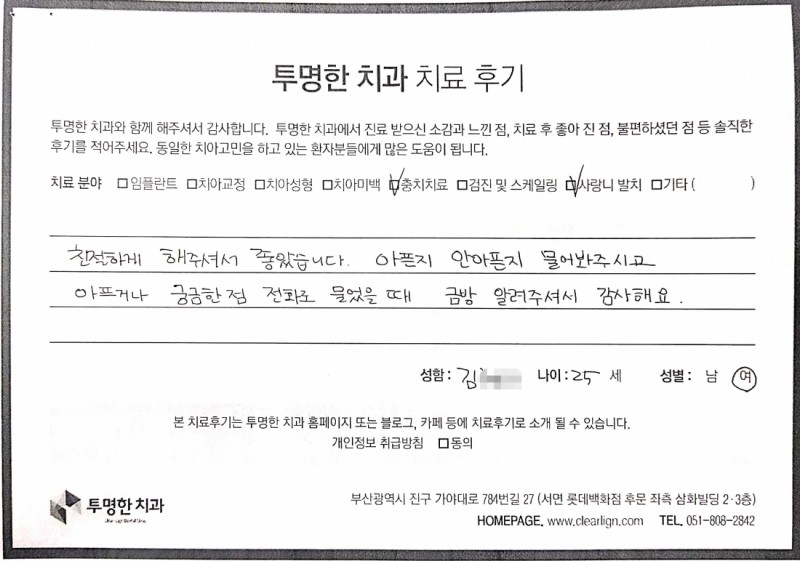 투명한 치과 치료 후기
투명한 치과와 함께 해주셔서 감사합니다. 투명한 치과에서 진료 받으신 소감과 느낀 점, 치료 후 좋아 진 점, 불편하셨던 점 등 솔직한
후기를 적어주세요. 동일한 치아고민을 하고 있는 환자분들에게 많은 도움이 됩니다.
치료 분야 □임플란트 □치아교정 □치아성형 □치아미백 ☑충치치료 □검진 및 스케일링 ☑사랑니 발치 □기타 ( )
친절하게 해주셔서 좋았습니다. 아픈지 안아픈지 물어봐주시고
아프거나 궁금한점 전화로 물었을때 금방 알려주셔서 감사해요.
성함 : 김 나이 : 25 세 성별 : 남 여
본 치료후기는 투명한 치과 홈페이지 또는 블로그, 카페 등에 치료후기로 소개 될 수 있습니다.
개인정보 취급방침 □동의
투명한 치과
부산광역시 진구 가야대로 784번길 27 (서면 롯데백화점 후문 좌측 삼화빌딩 2·3층)
HOMEPAGE. www.clearlign.com TEL. 051-808-2842